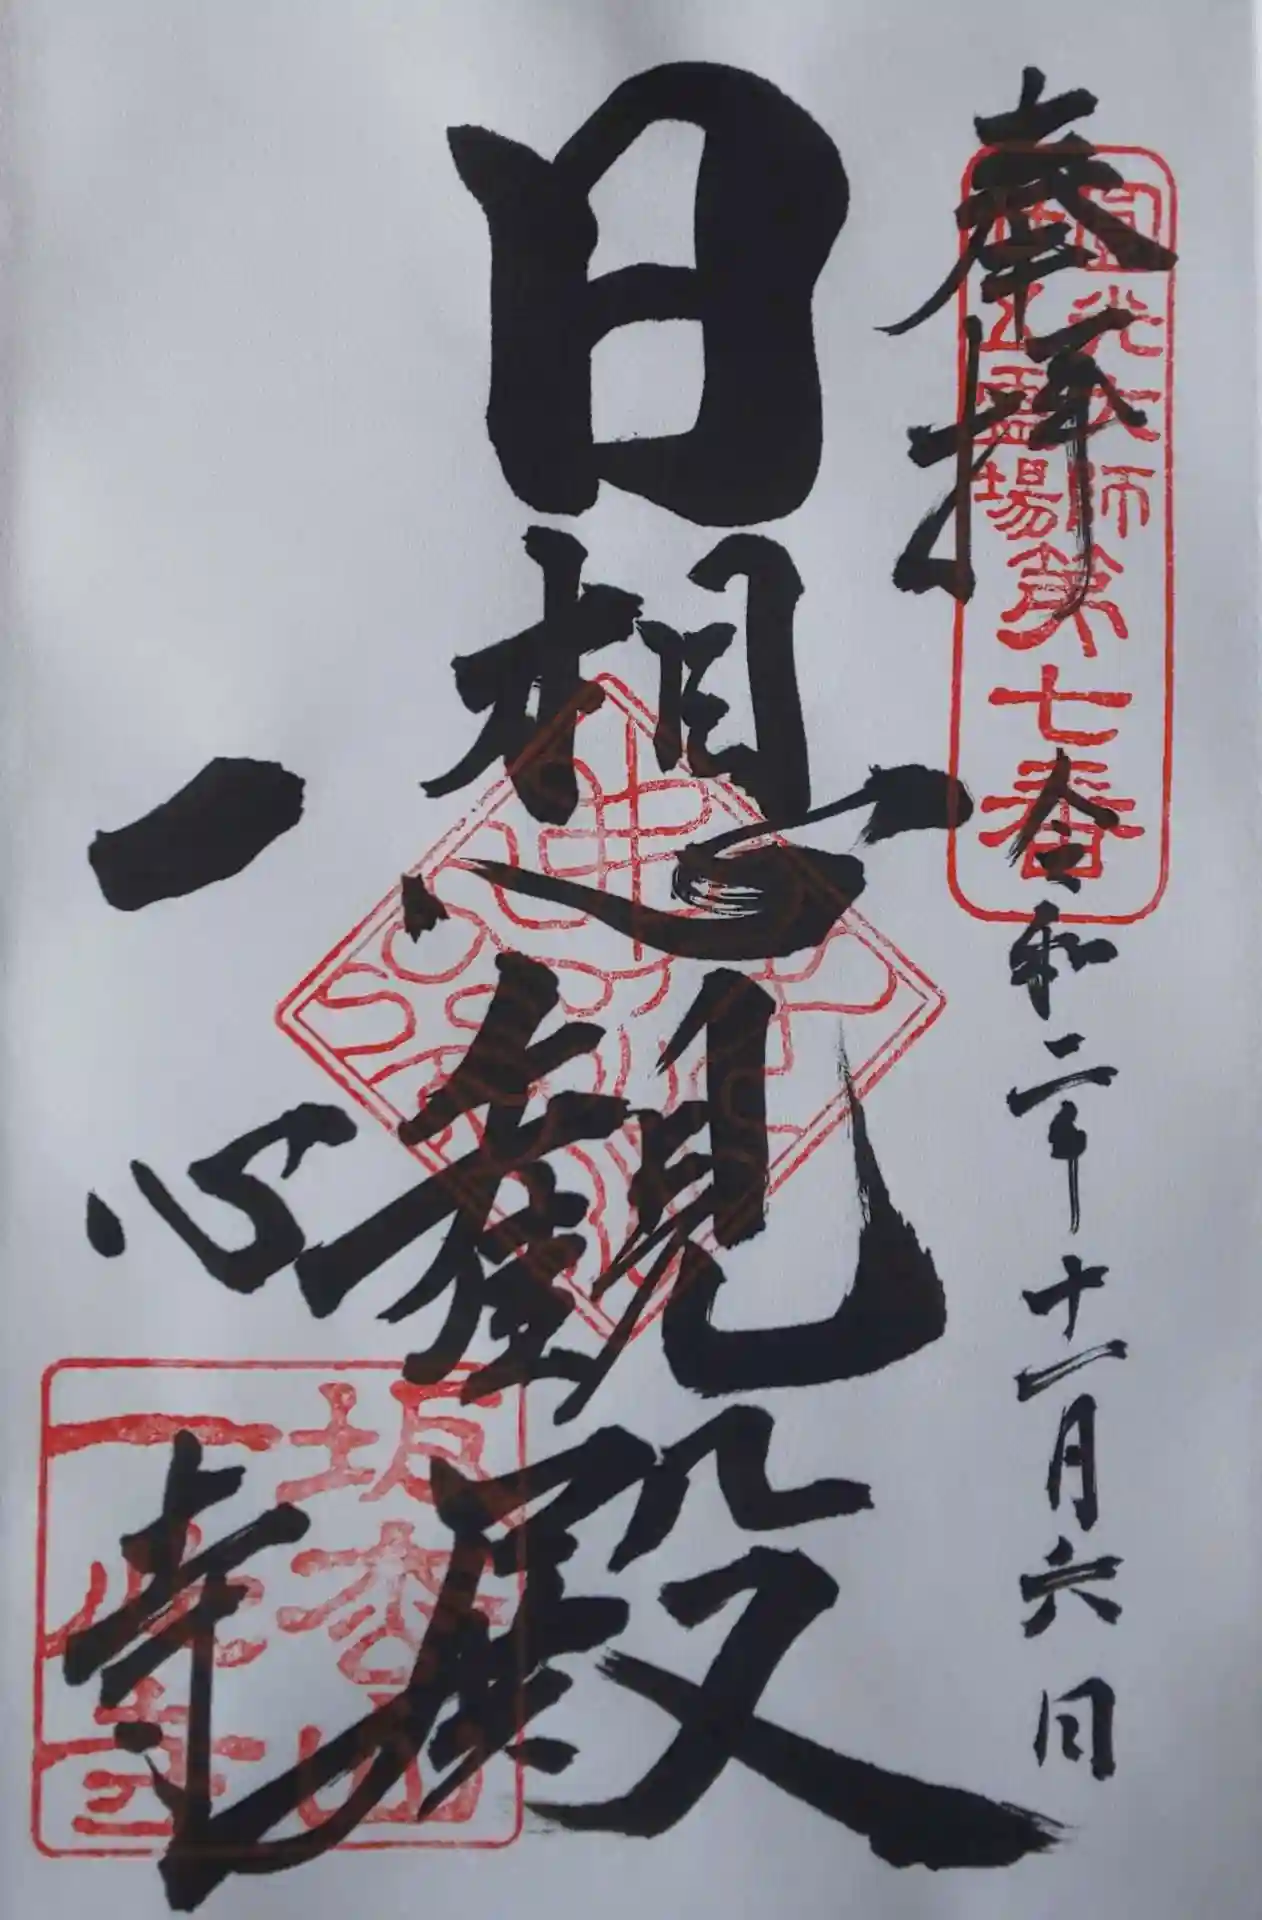 奉拝
圓光大師
霊場
第七番
令和二年十一月六日
日想観殿
一心寺
坂松山
一心寺